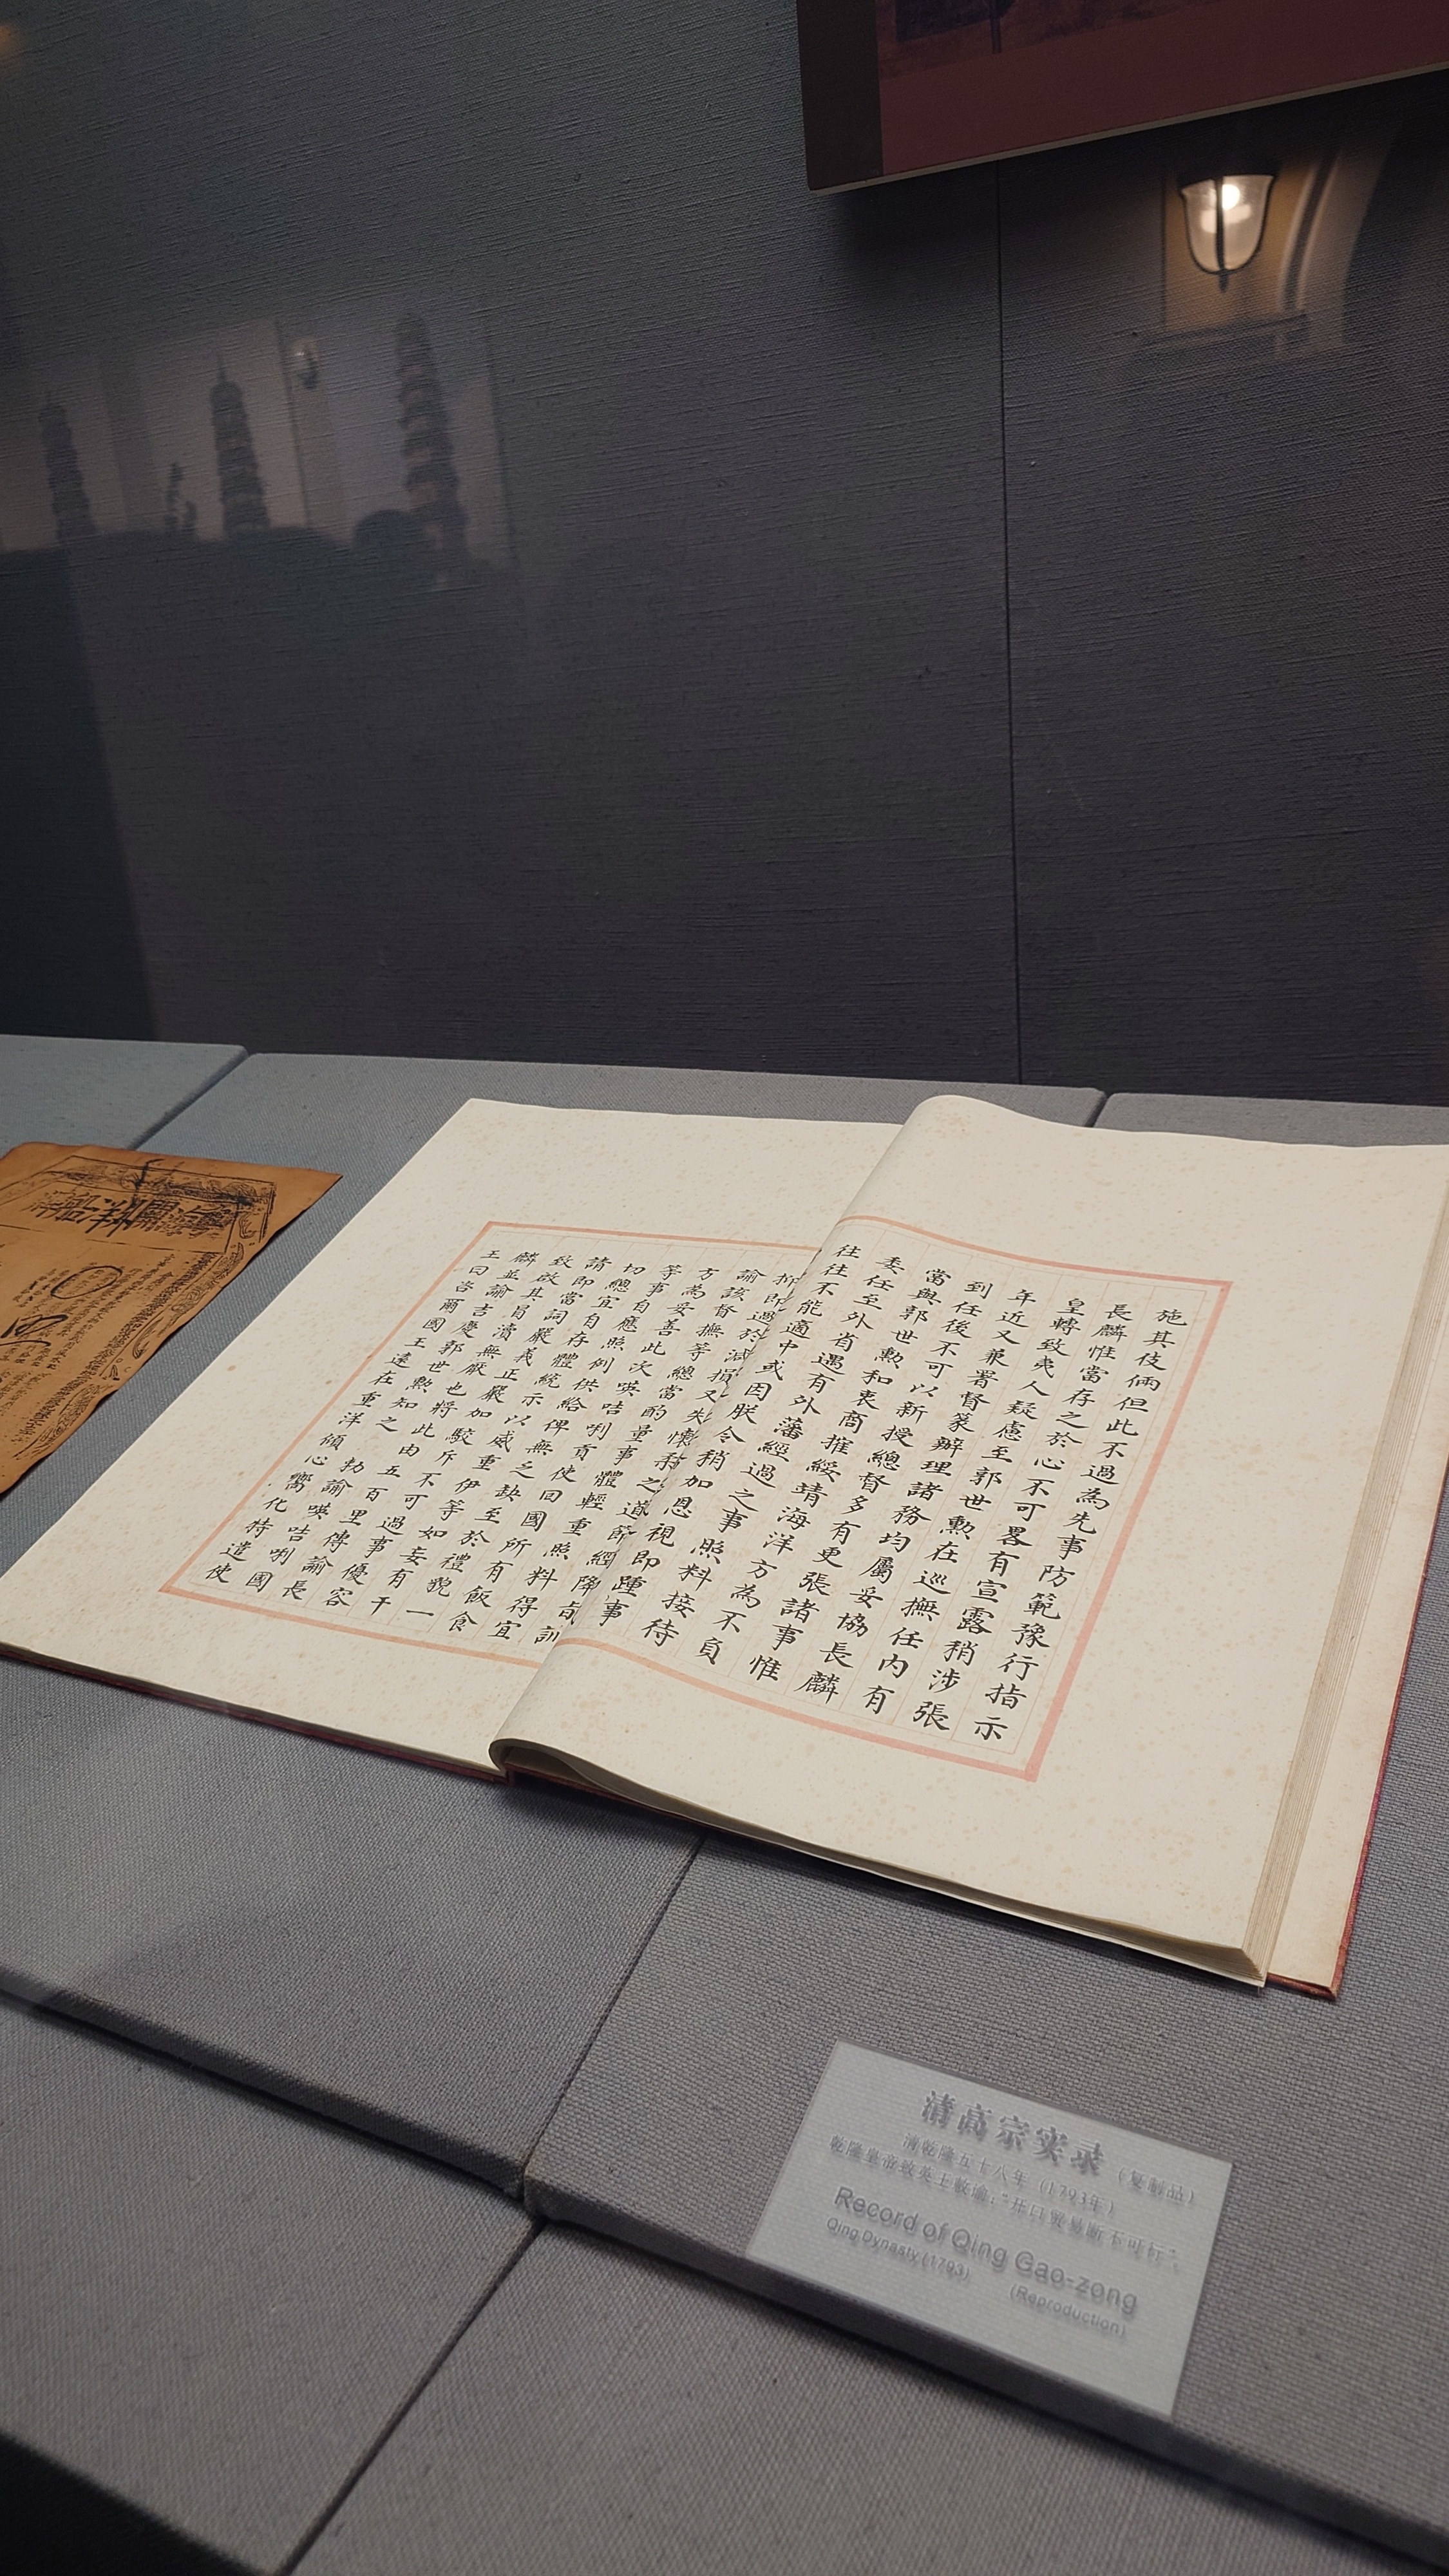 施其伎倆但此不過為先事防範豫行指示
長麟惟當存之於心不可畧有宣露稍涉張
皇轉致夷人疑慮至郭世勲在巡撫任内有
年近又兼署督篆辦理諸務均屬妥協長麟
到任後不可以新授總督多有更張諸事惟
當與郭世勲和衷商搉綏靖海洋方為不負
委任至外省遇有外藩經過之事照料接待
往往不能適中或因朕令稍加恩視即踵事
抑即過於減損又失懷之道節經降旨訓
諭該督撫等總當酌量事體輕重照料得宜
方為妥善此次𠸄咭唎貢使回國所有飯食
等事自應照例供給俾無乏缺至於禮貌一
切總宜自存體統示以威重伊等如妄有干
請即當詞嚴義正嚴加駁斥不可過事優容
致啟其冒瀆無厭也將此由五百里傳諭長
麟並諭吉慶郭世勲知之 勅諭𠸄咭唎國
王曰咨爾國王遠在重洋傾心嚮化特遣使
清高宗实录（复制品）
清乾隆五十八年（1793年）
乾隆皇帝致英王敕谕：“开口贸易断不可行”。
Record of Qing Gao-zong
Qing Dynasty (1793)
(Reproduction)